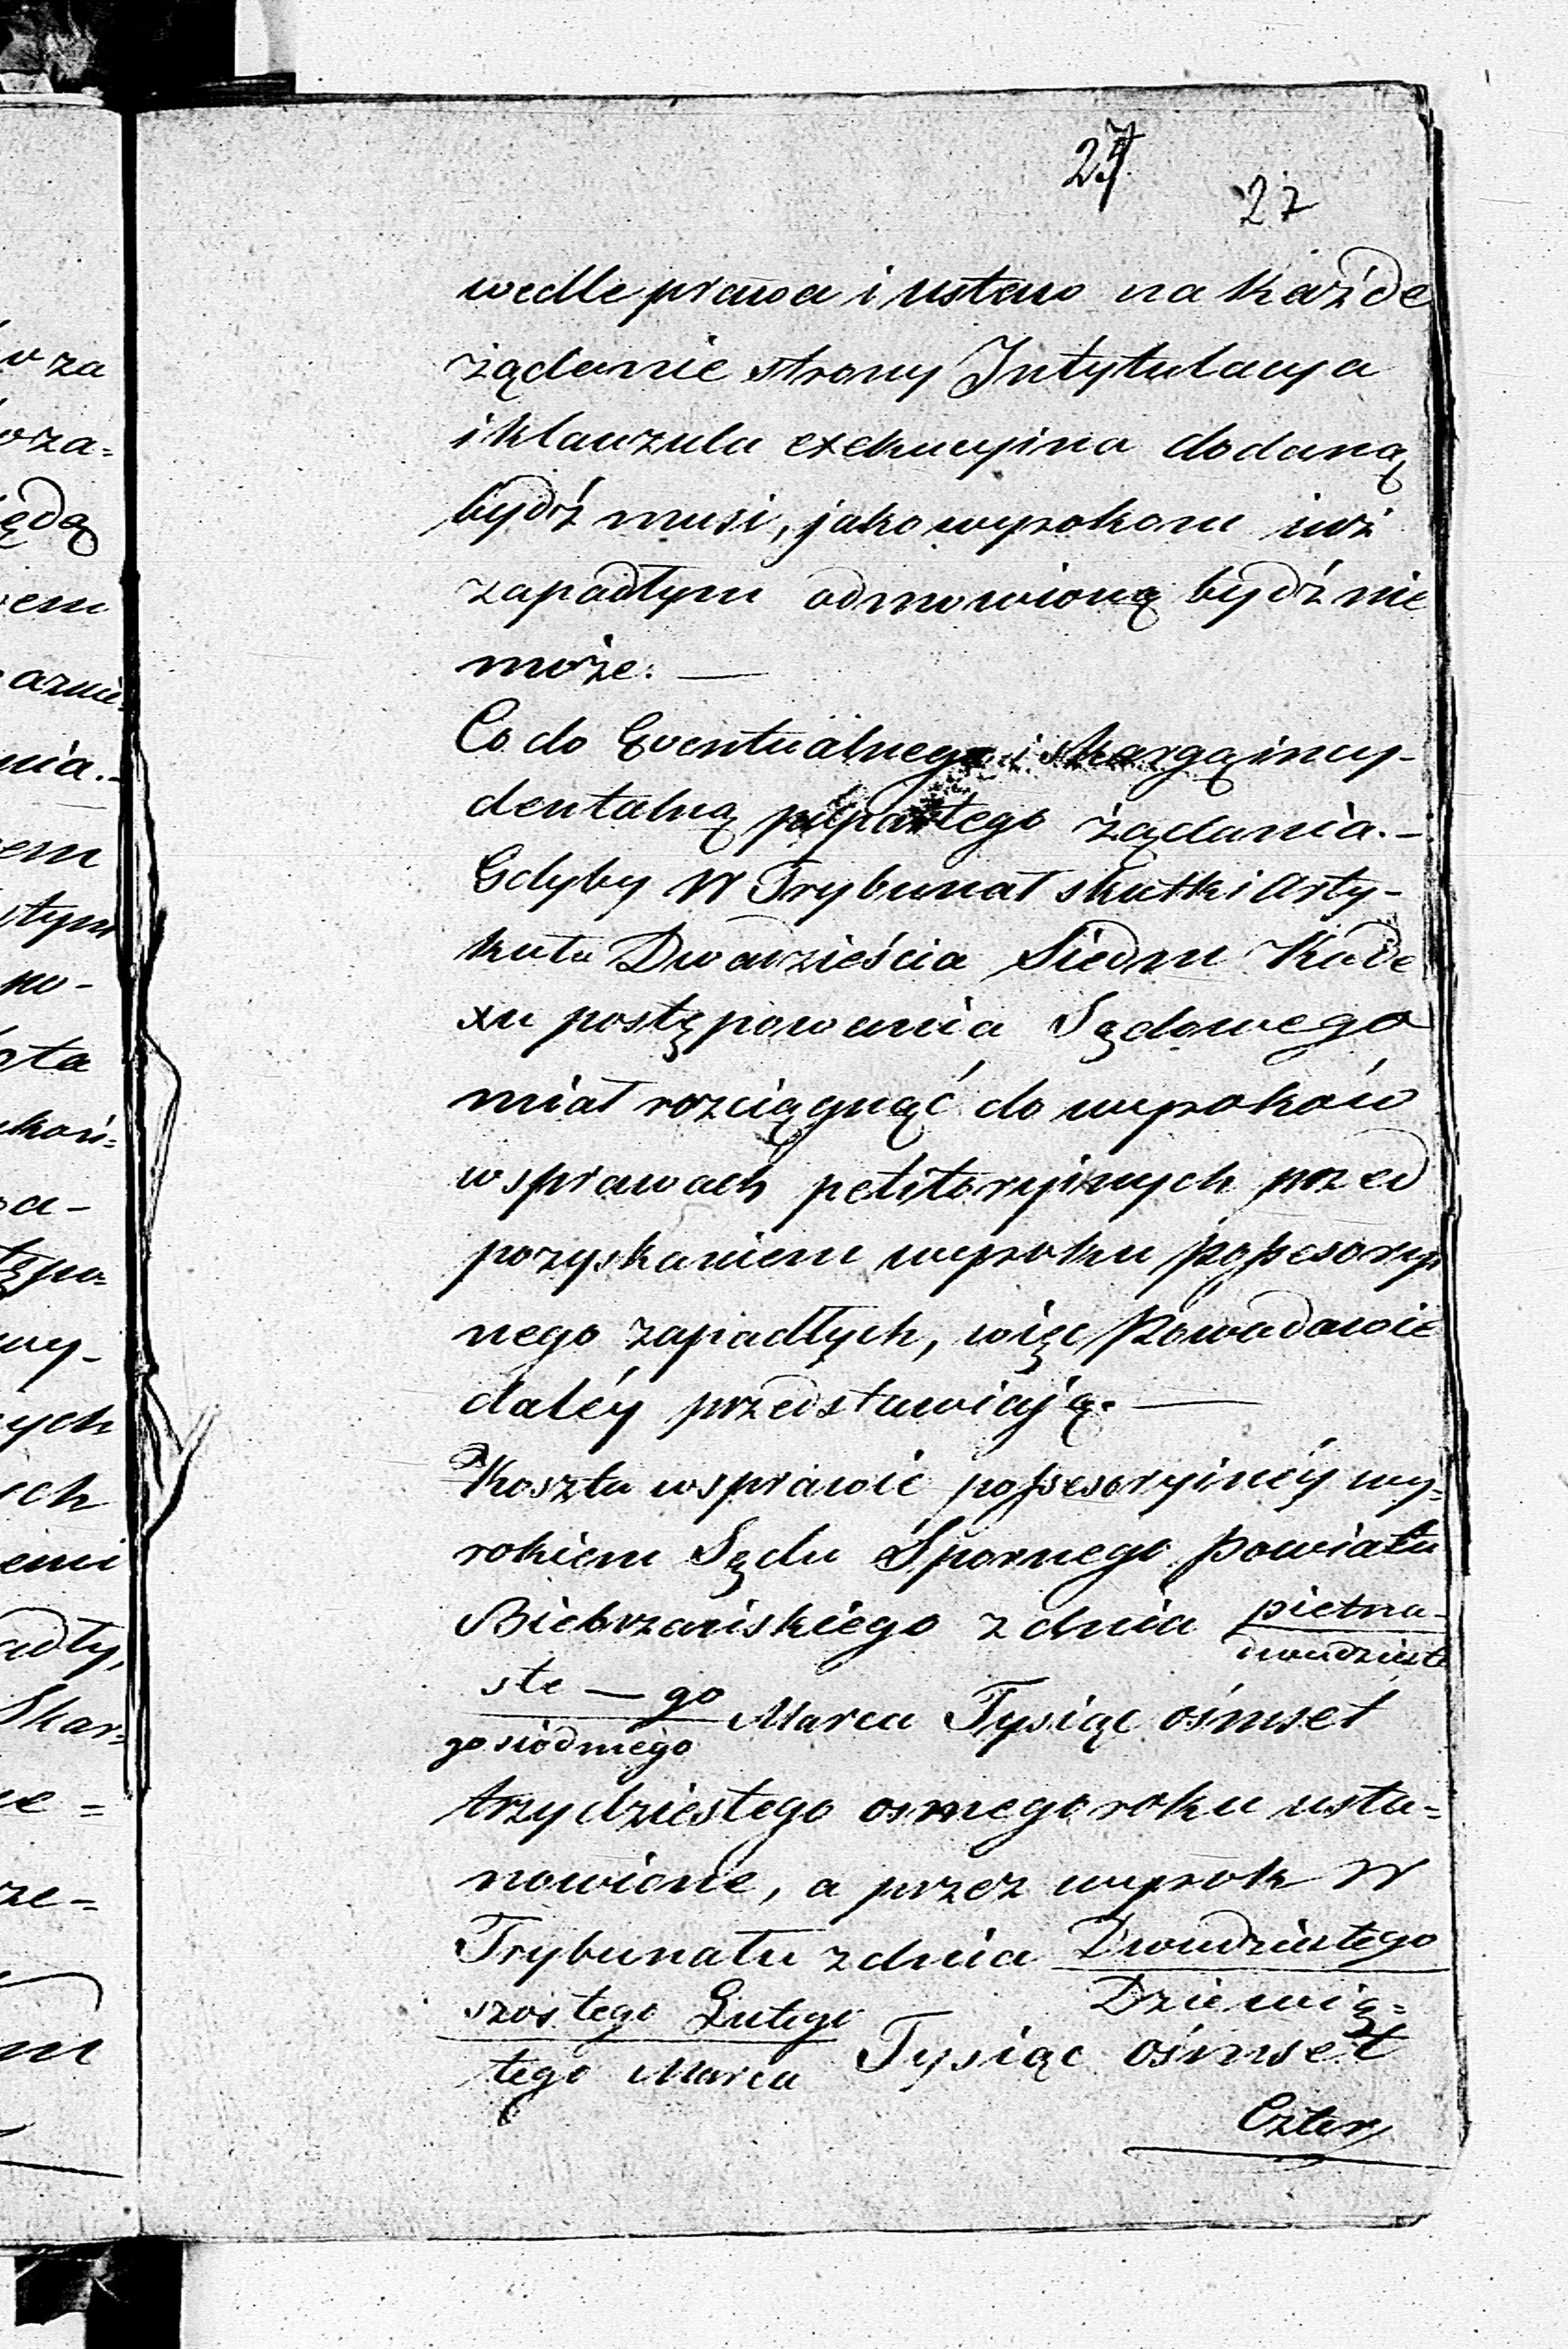 27
27
wedle prawa i ustaw na każde
żądanie strony Intytulacya
i klauzula exekucyina dodaną
bydź musi, jako wyrokom iuż
zapadłym odmowioną bydź nie
może. —
Co do Eventualnego i skargą incy-
dentalną popartego żądania. —
Gdyby W Trybunał skutki Arty-
kułu Dwadzieścia Siedm Kode
xu postępowania Sądowego
miał rozciągnąć do wyroków
w sprawach petitoryinych przed
pozyskaniem wyroku possesoryi
nego zapadłych, więc Powodowie
daléy przedstawiaią. —
Koszta w sprawie possesoryinéy wy-
rokiem Sądu Spornego Powiatu
Biebrzańskiego z dnia pietna-
dwudzieste
ste — go Marca Tysiąc ośmset
go siódmego
trzydziestego osmego roku usta=
nowione, a przez wyrok W
Trybunału z dnia Dwudziestego
Dziewią=
szostego Lutego Tysiąc ośmset
tego Marca
Czter
w za
za=
ędą
em
nia.-
em
po-
ota
a-
wy-
ych
ich
emi
adły,
Skar=
ze=
m